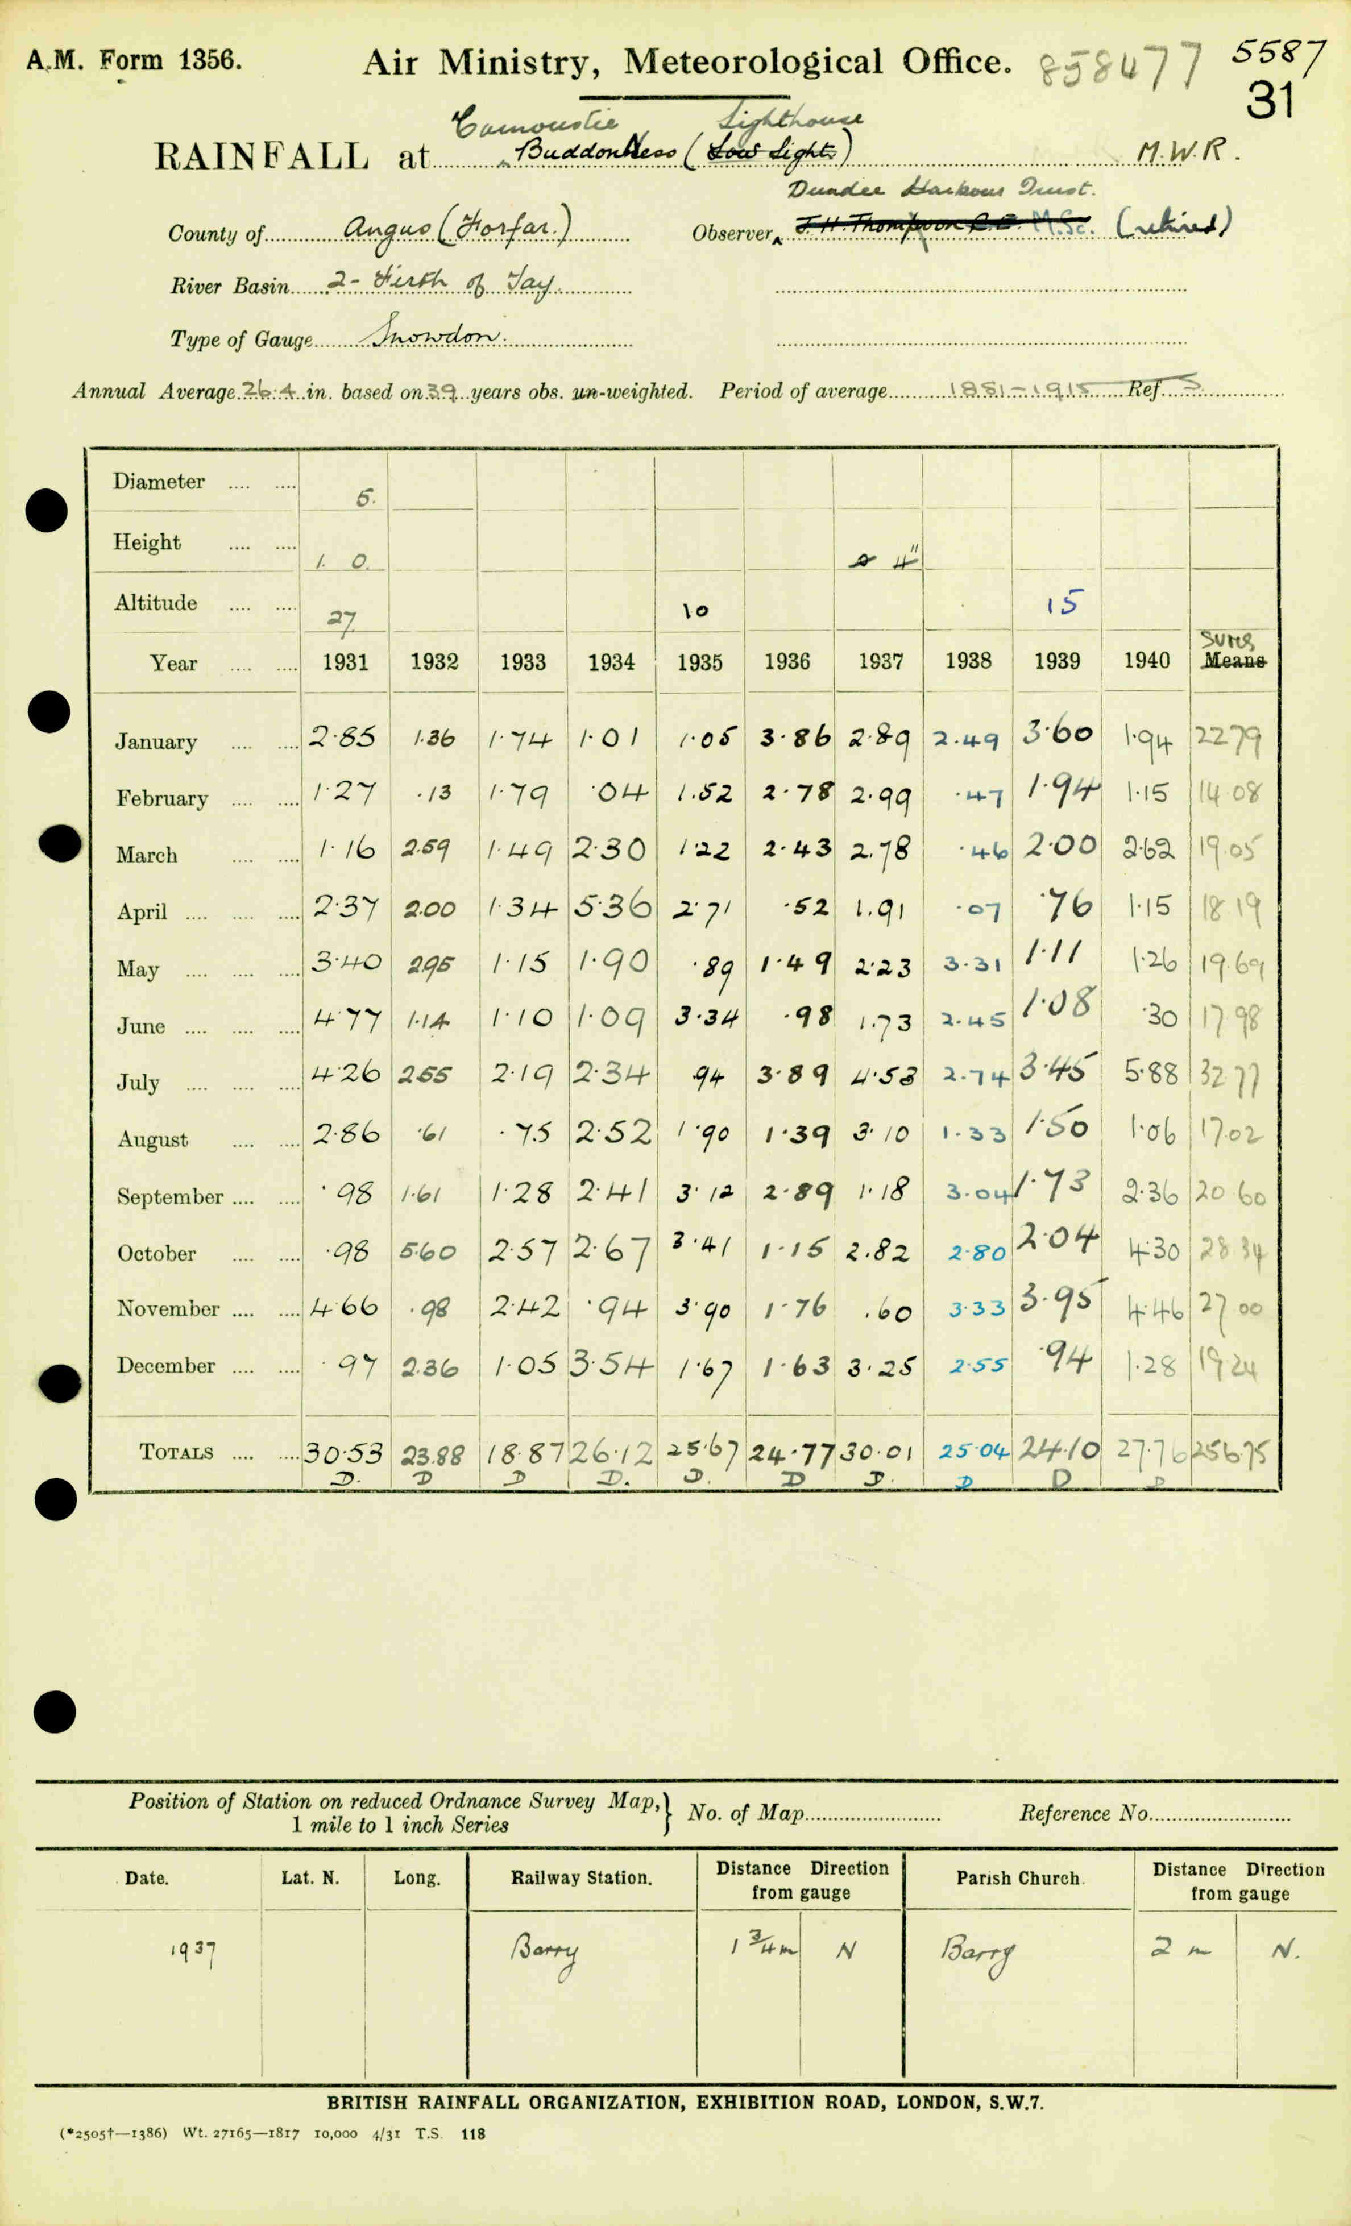 A.M. Form 1356.
Air Ministry, Meteorological Office. 858477 5587
31
Carnoustie Lighthouse
RAINFALL at Buddon Ness (Low Lights) M.W.R.
Dundee Harbour Trust.
County of Angus (Forfar.) Observer J.H. Thompson C.E. M.Sc. (retired)
River Basin 2- Firth of Tay.
Type of Gauge Snowdon.
Annual Average 26.4 in. based on 39 years obs. un-weighted. Period of average 1881-1915 Ref. S.
Diameter .... .... 5.
Height .... .... 1. 0. 0 4"
Altitude .... .... 27 10 15
Sums
Year .... .... 1931 1932 1933 1934 1935 1936 1937 1938 1939 1940 Means
January .... .... 2.85 1.36 1.74 1.01 1.05 3.86 2.89 2.49 3.60 1.94 22 79
February .... .... 1.27 .13 1.79 .04 1.52 2.78 2.99 .47 1.94 1.15 14 08
March .... .... 1.16 2.59 1.49 2.30 1.22 2.43 2.78 .46 2.00 2.62 19.05
April .... .... .... 2.37 2.00 1.34 5.36 2.71 .52 1.91 .07 .76 1.15 18 19
May .... .... .... 3.40 2.95 1.15 1.90 .89 1.49 2.23 3.31 1.11 1.26 19.69
June .... .... .... 4.77 1.14 1.10 1.09 3.34 .98 1.73 2.45 1.08 .30 17 98
July .... .... .... 4.26 2.55 2.19 2.34 .94 3.89 4.53 2.74 3.45 5.88 32 77
August .... .... 2.86 .61 .75 2.52 1.90 1.39 3.10 1.33 1.50 1.06 17.02
September .... .... .98 1.61 1.28 2.41 3.12 2.89 1.18 3.04 1.73 2.36 20 60
October .... .... .98 5.60 2.57 2.67 3.41 1.15 2.82 2.80 2.04 4.30 28 34
November .... .... 4.66 .98 2.42 .94 3.90 1.76 .60 3.33 3.95 4.46 27 00
December .... .... .97 2.36 1.05 3.54 1.67 1.63 3.25 2.55 .94 1.28 19 24
TOTALS .... .... 30.53 23.88 18.87 26.12 25.67 24.77 30.01 25.04 24.10 27.76 256.75
D. D D D. D. D D. D D D
Position of Station on reduced Ordnance Survey Map, } No. of Map Reference No.
1 mile to 1 inch Series
Date. Lat. N. Long. Railway Station. Distance Direction from gauge Parish Church. Distance Direction from gauge
1937 Barry 1 3/4 m N Barry 2 m N.
BRITISH RAINFALL ORGANIZATION, EXHIBITION ROAD, LONDON, S.W.7.
(*2505†—1386) Wt. 27165—1817 10,000 4/31 T.S. 118